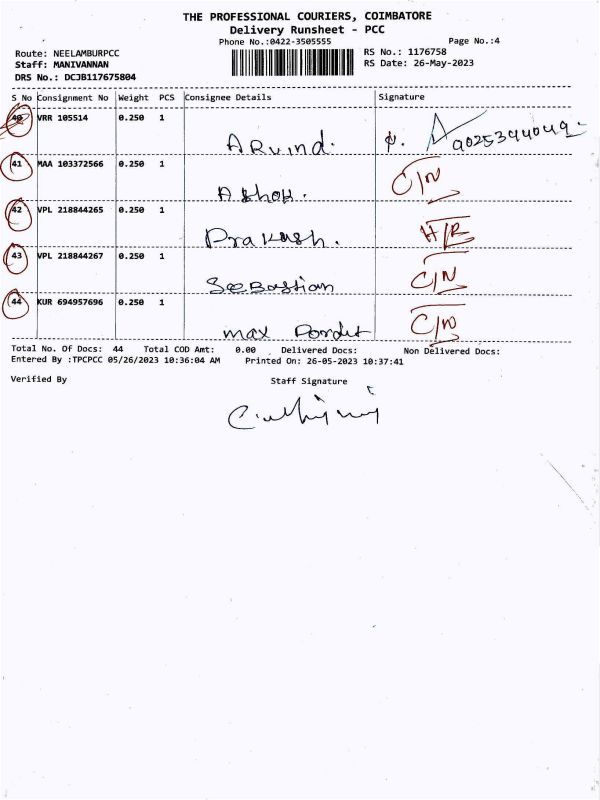 THE PROFESSIONAL COURIERS, COIMBATORE
Delivery Runsheet - PCC
Phone No.:0422-3505555 Page No.:4
Route: NEELAMBURPCC RS No.: 1176758
Staff: MANIVANNAN RS Date: 26-May-2023
DRS No.: DCJB117675804
S No Consignment No Weight PCS Consignee Details Signature
40 VRR 105514 0.250 1
Arvind. 9025394049
41 MAA 103372566 0.250 1 C/N
Ashok.
42 VPL 218844265 0.250 1 H/R
Prakash.
43 VPL 218844267 0.250 1 C/N
Sebastian
44 KUR 694957696 0.250 1 C/N
max
Total No. Of Docs: 44 Total COD Amt: 0.00 Delivered Docs: Non Delivered Docs:
Entered By :TPCPCC 05/26/2023 10:36:04 AM Printed On: 26-05-2023 10:37:41
Verified By Staff Signature